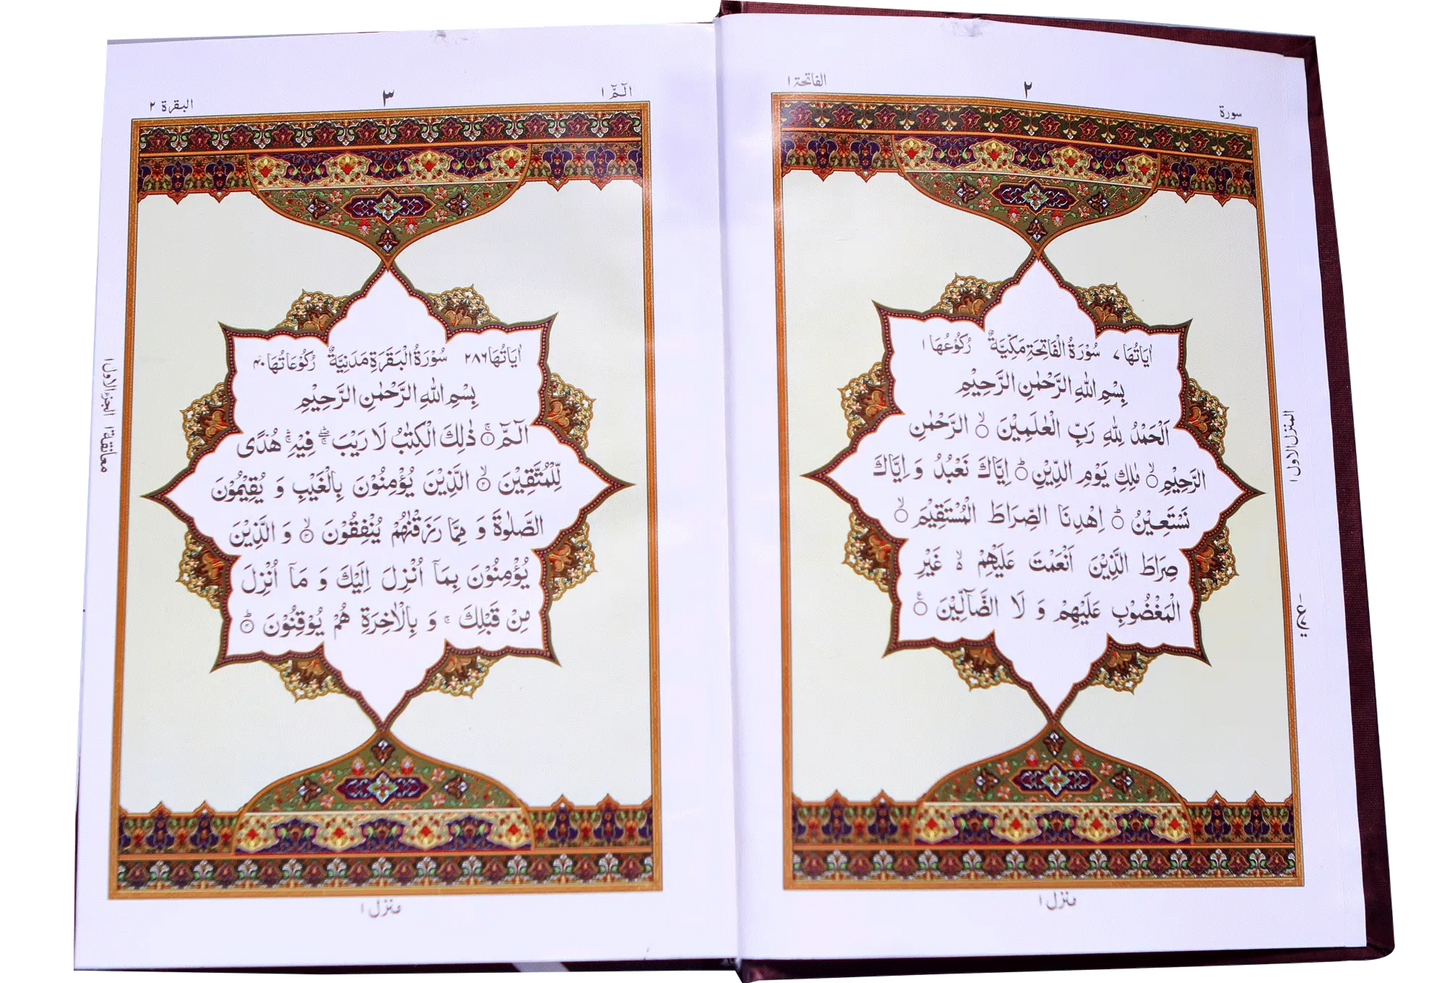 سورة
٢
الفاتحة ١
اٰيَاتُهَا ٧ سُوْرَةُ الْفَاتِحَةِ مَكِّيَّةٌ رُكُوْعُهَا ١
بِسْمِ اللهِ الرَّحْمٰنِ الرَّحِيْمِ
اَلْحَمْدُ لِلّٰهِ رَبِّ الْعٰلَمِيْنَ ۙ الرَّحْمٰنِ
الرَّحِيْمِ ۙ مٰلِكِ يَوْمِ الدِّيْنِ ؕ اِيَّاكَ نَعْبُدُ وَ اِيَّاكَ
نَسْتَعِيْنُ ؕ اِهْدِنَا الصِّرَاطَ الْمُسْتَقِيْمَ ۙ
صِرَاطَ الَّذِيْنَ اَنْعَمْتَ عَلَيْهِمْ ۙ غَيْرِ
الْمَغْضُوْبِ عَلَيْهِمْ وَ لَا الضَّآلِّيْنَ
المنزل الاول ١
منزل ١
الٓمّٓ ١
٣
البقرة ٢
اٰيَاتُهَا ٢٨٦ سُوْرَةُ الْبَقَرَةِ مَدَنِيَّةٌ رُكُوْعَاتُهَا ٤٠
بِسْمِ اللهِ الرَّحْمٰنِ الرَّحِيْمِ
الٓمّٓ ۚ ذٰلِكَ الْكِتٰبُ لَا رَيْبَ ۖ فِيْهِ ۚ هُدًى
لِّلْمُتَّقِيْنَ ۙ الَّذِيْنَ يُؤْمِنُوْنَ بِالْغَيْبِ وَ يُقِيْمُوْنَ
الصَّلٰوةَ وَ مِمَّا رَزَقْنٰهُمْ يُنْفِقُوْنَ ۙ وَ الَّذِيْنَ
يُؤْمِنُوْنَ بِمَاۤ اُنْزِلَ اِلَيْكَ وَ مَاۤ اُنْزِلَ
مِنْ قَبْلِكَ ۚ وَ بِالْاٰخِرَةِ هُمْ يُوْقِنُوْنَ ؕ
معانقة ١ الجزء الاول ١
منزل ١